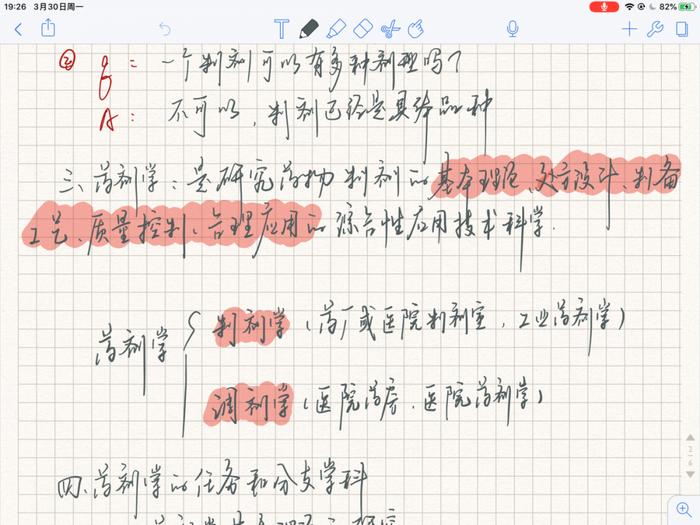 19:26 3月30日周一 82%
② Q: 一个制剂可以有多种剂型吗?
A: 不可以,制剂已经是具体品种
三、药剂学:是研究药物制剂的基本理论、处方设计、制备
工艺、质量控制、合理应用的综合性应用技术科学.
制剂学(药厂或医院制剂室,工业药剂学)
药剂学
调剂学(医院药房,医院药剂学)
四.药剂学的任务和分支学科